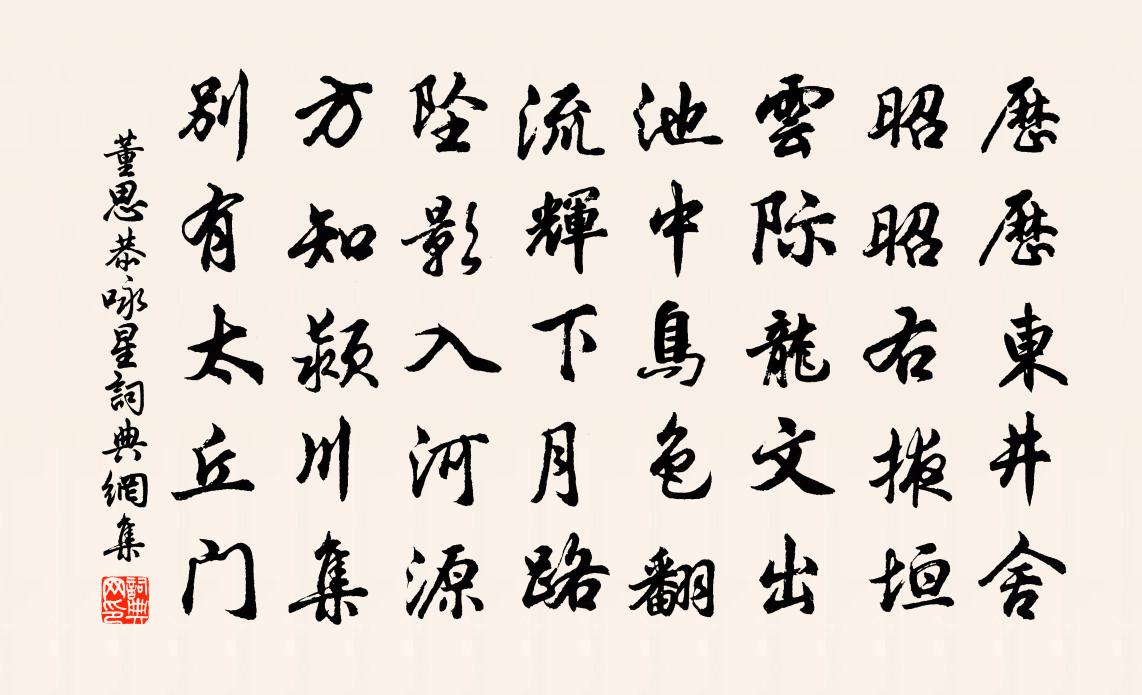 歷歷東井舍
昭昭右掖垣
雲际龍文出
池中鳥色翻
流輝下月路
坠影入河源
方知颍川集
別有太丘门
董思恭咏星詞典網集
詞典网印